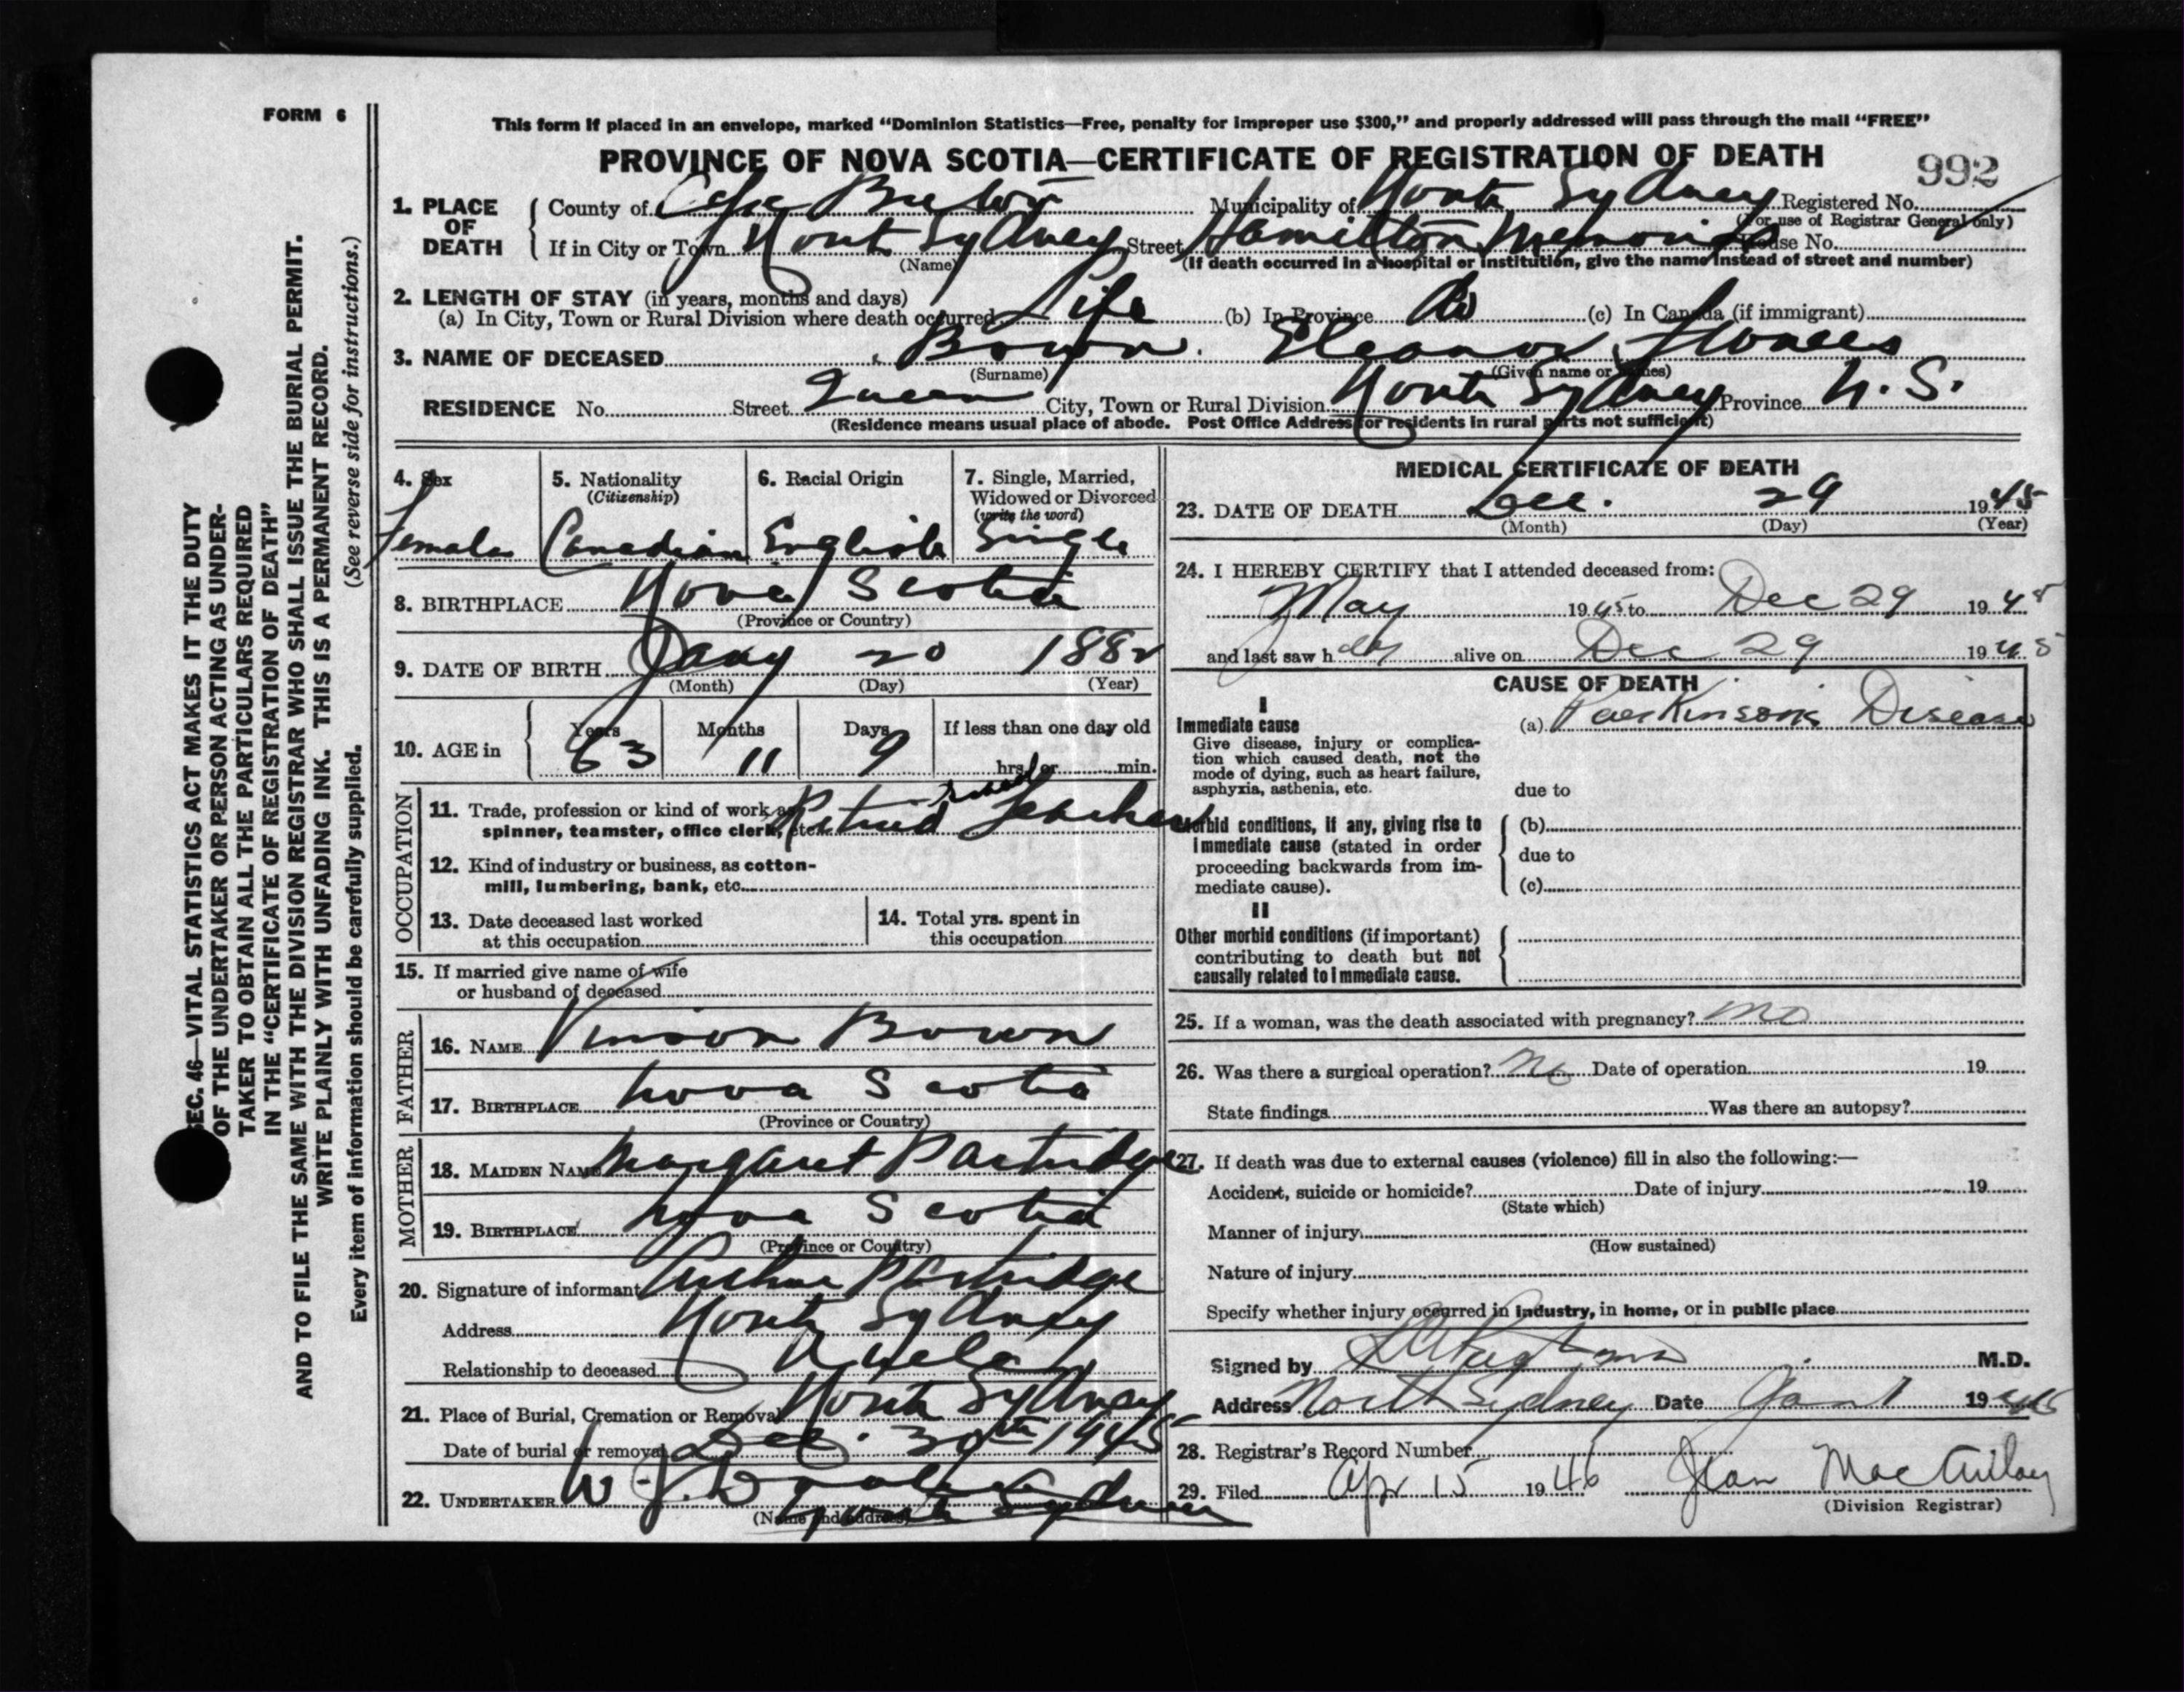 FORM 6
This form if placed in an envelope, marked "Dominion Statistics—Free, penalty for improper use $300," and properly addressed will pass through the mail "FREE"
PROVINCE OF NOVA SCOTIA—CERTIFICATE OF REGISTRATION OF DEATH
992
1. PLACE OF DEATH
County of Cape Breton Municipality of North Sydney Registered No.
(For use of Registrar General only)
If in City or Town North Sydney Street Hamilton Memorial House No.
(Name)
(If death occurred in a hospital or institution, give the name instead of street and number)
2. LENGTH OF STAY (in years, months and days)
(a) In City, Town or Rural Division where death occurred Life (b) In Province Do (c) In Canada (if immigrant)
3. NAME OF DECEASED Bown. Eleanor Frances
(Surname) (Given name or names)
RESIDENCE No. Street Queen City, Town or Rural Division North Sydney Province N. S.
(Residence means usual place of abode. Post Office Address for residents in rural parts not sufficient)
4. Sex
Female
5. Nationality
(Citizenship)
Canadian
6. Racial Origin
English
7. Single, Married,
Widowed or Divorced
(write the word)
Single
8. BIRTHPLACE Nova Scotia
(Province or Country)
9. DATE OF BIRTH Jany 20 1882
(Month) (Day) (Year)
10. AGE in
Years Months Days If less than one day old
63 11 9 hrs. or min.
OCCUPATION
11. Trade, profession or kind of work as
spinner, teamster, office clerk, etc. Retired school Teacher
12. Kind of industry or business, as cotton-
mill, lumbering, bank, etc.
13. Date deceased last worked
at this occupation
14. Total yrs. spent in
this occupation
15. If married give name of wife
or husband of deceased
FATHER
16. NAME Vinson Bown
17. BIRTHPLACE Nova Scotia
(Province or Country)
MOTHER
18. MAIDEN NAME Margaret Partridge
19. BIRTHPLACE Nova Scotia
(Province or Country)
20. Signature of informant Arthur Partridge
Address North Sydney
Relationship to deceased
21. Place of Burial, Cremation or Removal North Sydney
Date of burial or removal Dec. 30th 1945
22. UNDERTAKER W. J.
North Sydney
(Name and address)
MEDICAL CERTIFICATE OF DEATH
23. DATE OF DEATH Dec. 29 1945
(Month) (Day) (Year)
24. I HEREBY CERTIFY that I attended deceased from:
May 1945 to Dec 29 1945
and last saw h er alive on Dec 29 1945
CAUSE OF DEATH
I
Immediate cause
Give disease, injury or complica-
tion which caused death, not the
mode of dying, such as heart failure,
asphyxia, asthenia, etc.
(a) Parkinsons Disease
due to
Morbid conditions, if any, giving rise to
immediate cause (stated in order
proceeding backwards from im-
mediate cause).
(b)
due to
(c)
II
Other morbid conditions (if important)
contributing to death but not
causally related to immediate cause.
25. If a woman, was the death associated with pregnancy? no
26. Was there a surgical operation? No Date of operation 19
State findings Was there an autopsy?
27. If death was due to external causes (violence) fill in also the following:—
Accident, suicide or homicide? Date of injury 19
(State which)
Manner of injury
(How sustained)
Nature of injury
Specify whether injury occurred in industry, in home, or in public place
Signed by M.D.
Address North Sydney Date Jan 1 19
28. Registrar's Record Number
29. Filed Apr 15 1946 Jean
(Division Registrar)
SEC. 46—VITAL STATISTICS ACT MAKES IT THE DUTY
OF THE UNDERTAKER OR PERSON ACTING AS UNDER-
TAKER TO OBTAIN ALL THE PARTICULARS REQUIRED
IN THE "CERTIFICATE OF REGISTRATION OF DEATH"
AND TO FILE THE SAME WITH THE DIVISION REGISTRAR WHO SHALL ISSUE THE BURIAL PERMIT.
WRITE PLAINLY WITH UNFADING INK. THIS IS A PERMANENT RECORD.
Every item of information should be carefully supplied. (See reverse side for instructions.)